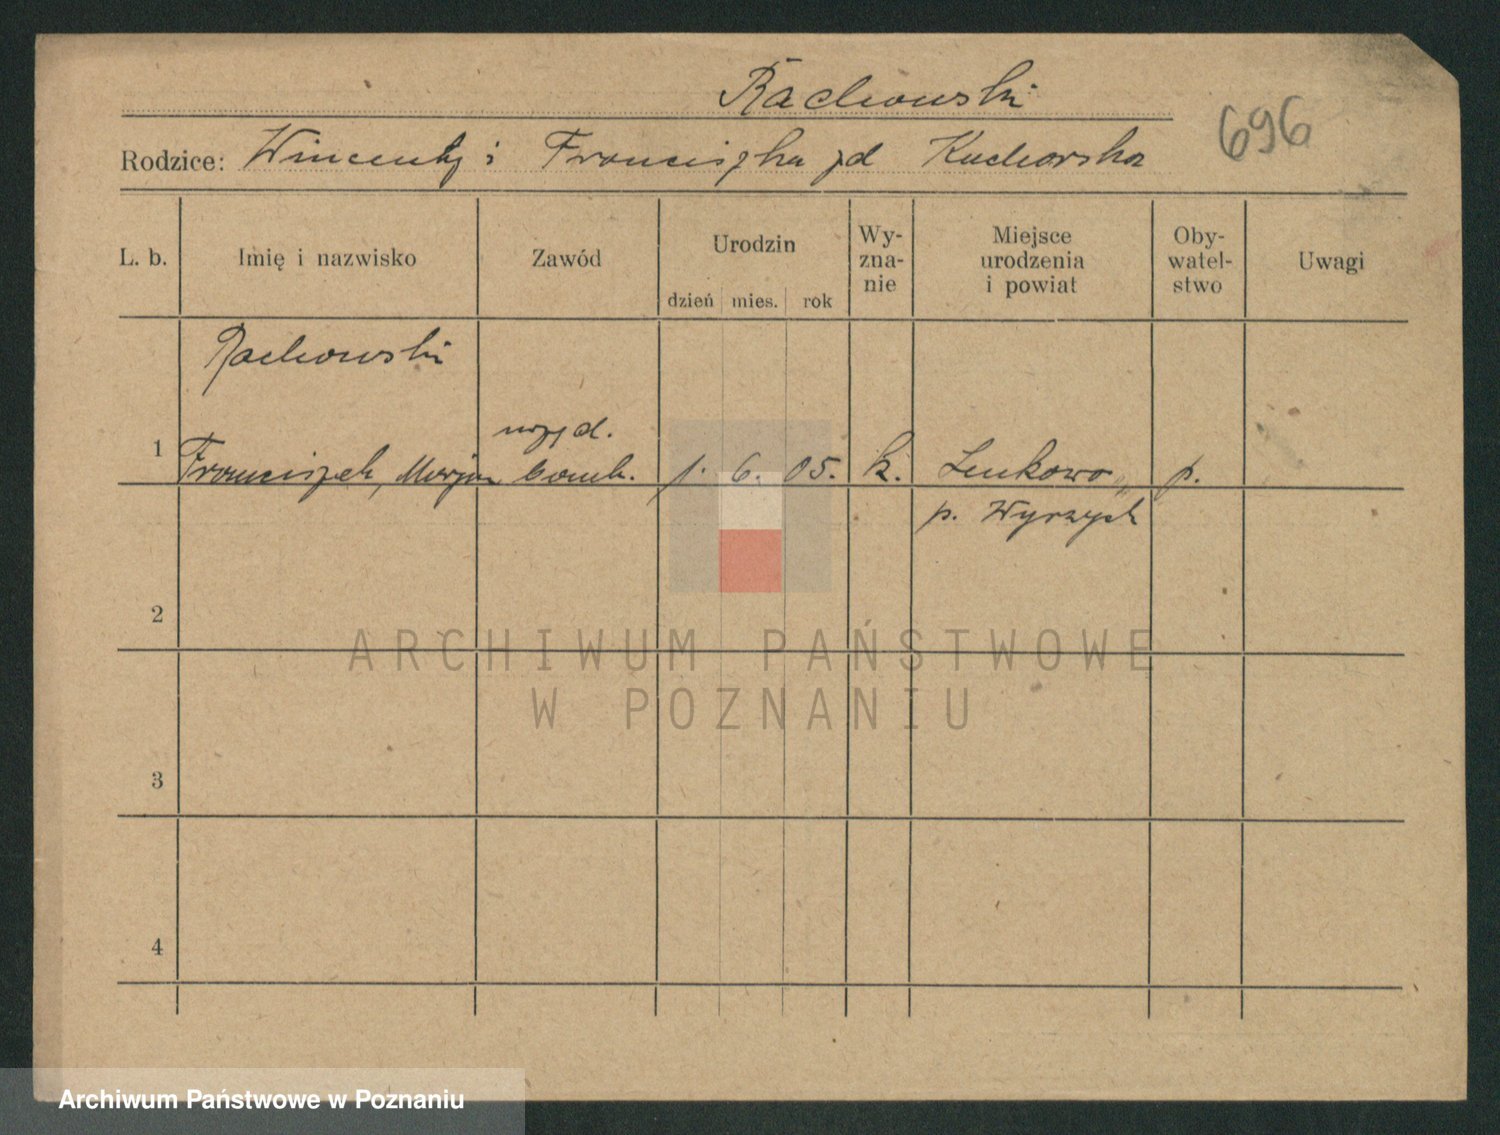 Rachowski
696
Rodzice: Wincenty i Franciszka zd Kuchorska
L. b. Imię i nazwisko Zawód Urodzin dzień mies. rok Wy- zna- nie Miejsce urodzenia i powiat Oby- watel- stwo Uwagi
Rachowski
1 Franciszek, Marjan 1. 6. 05. k. p.
p. Wyrzysk
2
ARCHIWUM PAŃSTWOWE
W POZNANIU
3
4
Archiwum Państwowe w Poznaniu